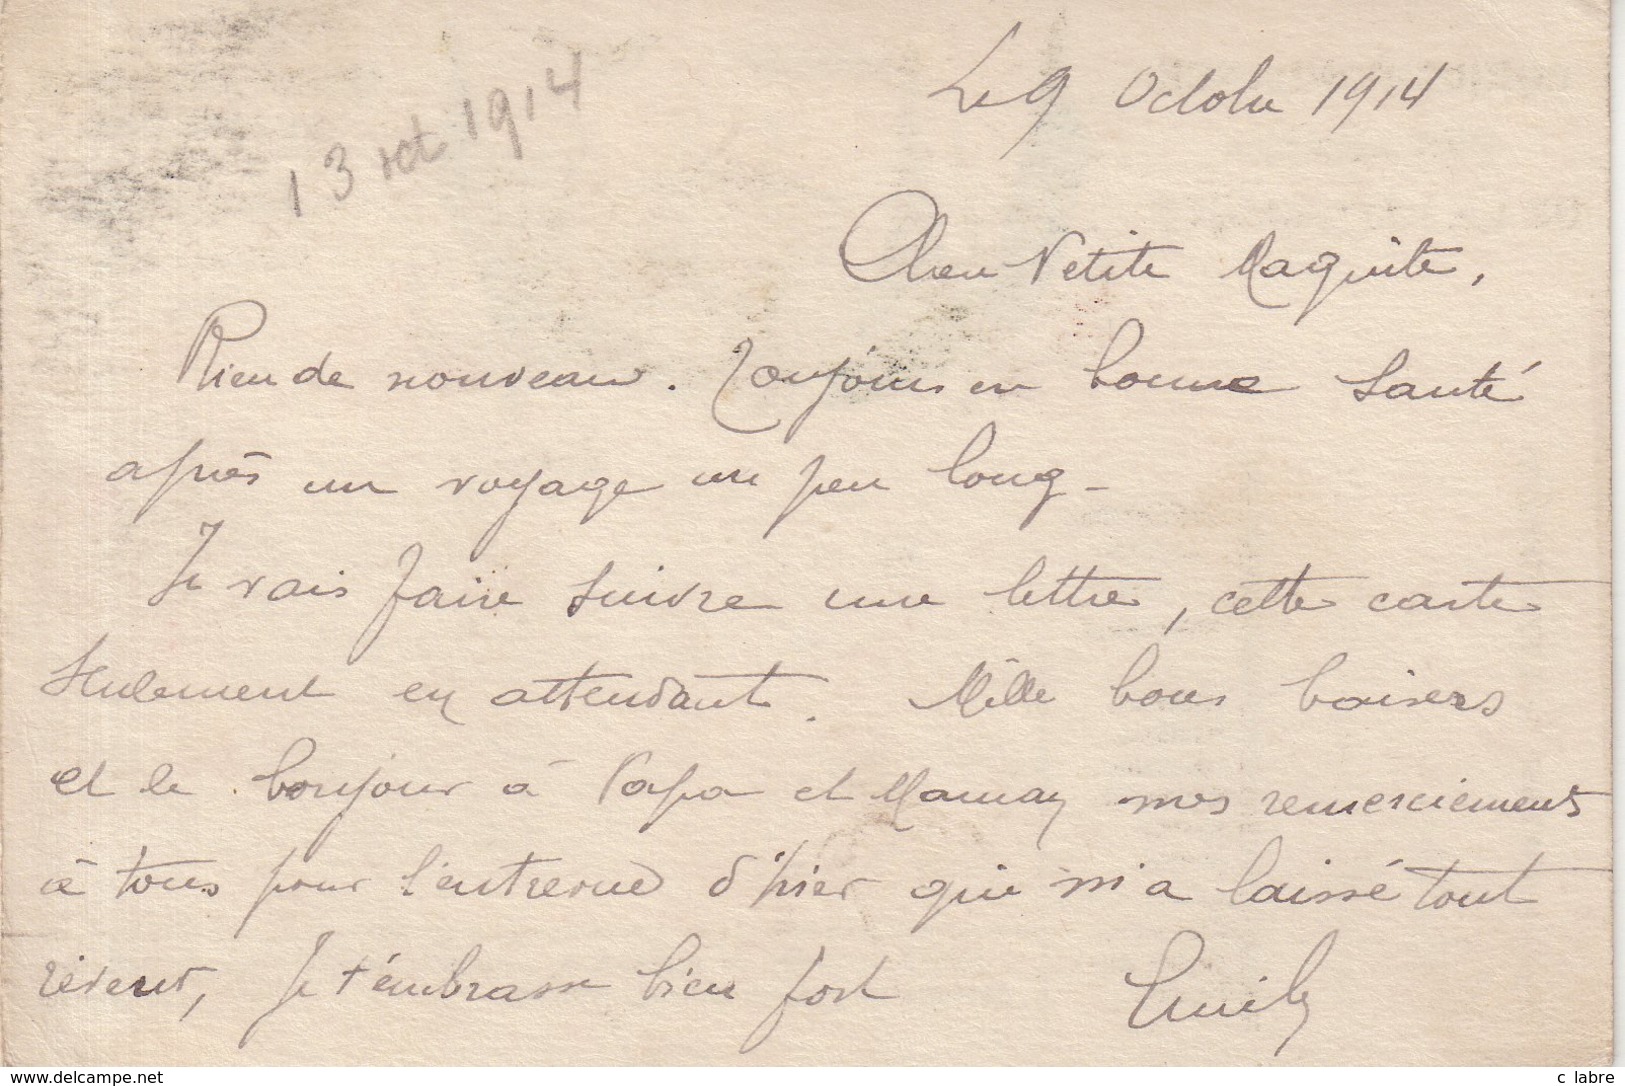 Le 9 Octobre 1914
13 oct 1914
Petite Maguite,
Rien de nouveau. Toujours en bonne santé
après un voyage un peu long -
Je vais faire suivre une lettre, cette carte
seulement en attendant. Mille bons baisers
et le bonjour à Papa et Maman mes remerciements
à tous pour l'entrevue d'hier qui m'a laissé tout
rêveur, Je t'embrasse bien fort Emile
www.delcampe.net
c labre